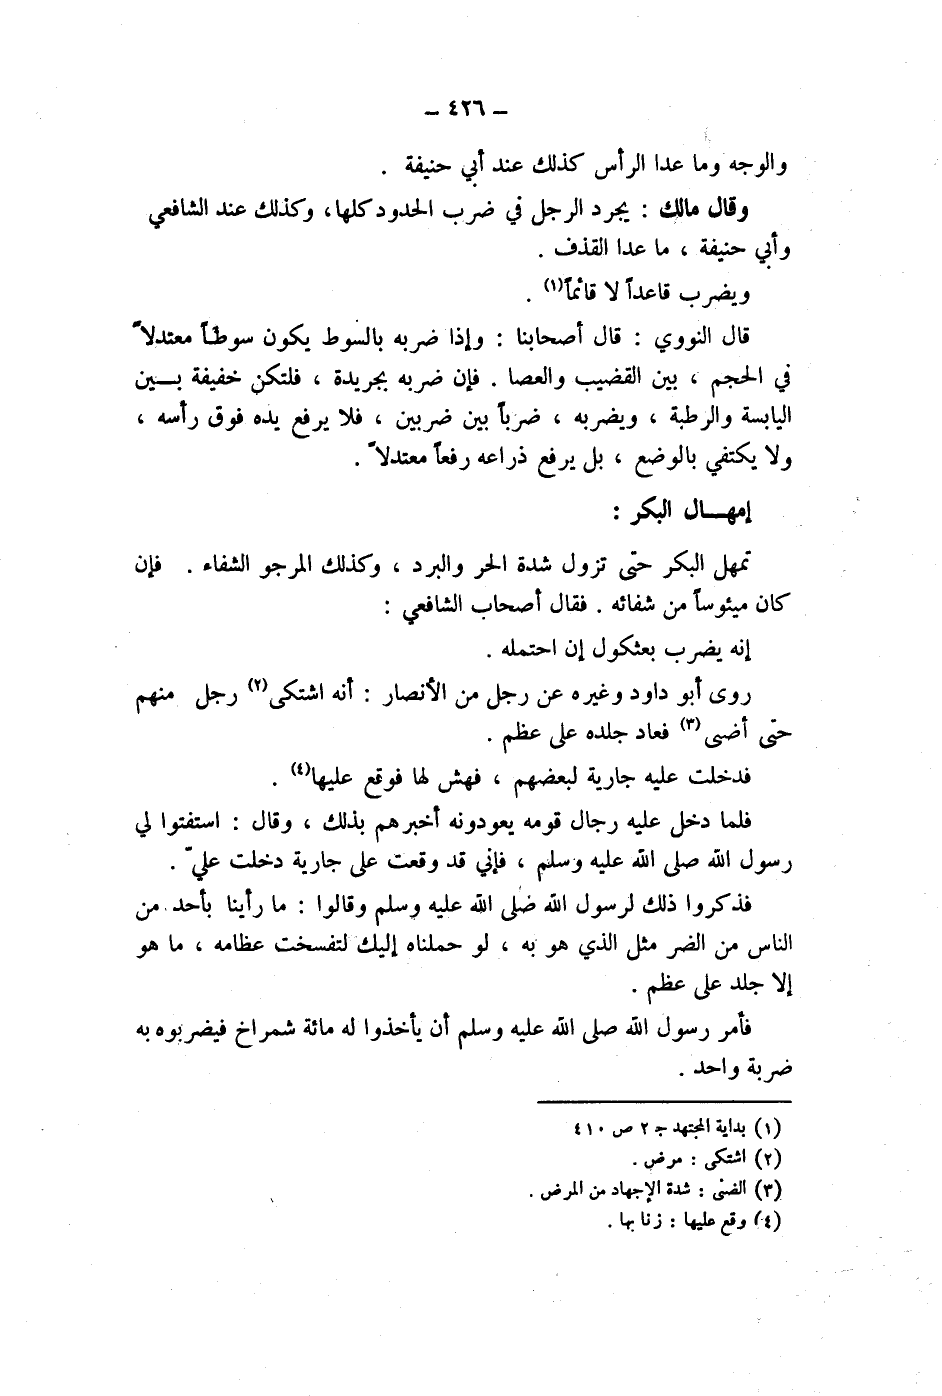 – ٤٢٦ –
والوجه وما عدا الرأس كذلك عند أبي حنيفة .
وقال مالك : يجرد الرجل في ضرب الحدود كلها، وكذلك عند الشافعي
وأبي حنيفة ، ما عدا القذف .
ويضرب قاعداً لا قائماً(١) .
قال النووي : قال أصحابنا : وإذا ضربه بالسوط يكون سوطاً معتدلاً
في الحجم ، بين القضيب والعصا . فإن ضربه بجريدة ، فلتكن خفيفة بــين
اليابسة والرطبة ، ويضربه ، ضرباً بين ضربين ، فلا يرفع يده فوق رأسه ،
ولا يكتفي بالوضع ، بل يرفع ذراعه رفعاً معتدلاً .
إمهــال البكر :
تمهل البكر حتى تزول شدة الحر والبرد ، وكذلك المرجو الشفاء . فإن
كان ميئوساً من شفائه . فقال أصحاب الشافعي :
إنه يضرب بعثكول إن احتمله .
روى أبو داود وغيره عن رجل من الأنصار : أنه اشتكى(٢) رجل منهم
حتى أضنى(٣) فعاد جلده على عظم .
فدخلت عليه جارية لبعضهم ، فهش لها فوقع عليها(٤) .
فلما دخل عليه رجال قومه يعودونه أخبرهم بذلك ، وقال : استفتوا لي
رسول الله صلى الله عليه وسلم ، فإني قد وقعت على جارية دخلت عليّ .
فذكروا ذلك لرسول الله صلى الله عليه وسلم وقالوا : ما رأينا بأحد من
الناس من الضر مثل الذي هو به ، لو حملناه إليك لتفسخت عظامه ، ما هو
إلا جلد على عظم .
فأمر رسول الله صلى الله عليه وسلم أن يأخذوا له مائة شمراخ فيضربوه به
ضربة واحد .
(١) بداية المجتهد جـ ٢ ص ٤١٠
(٢) اشتكى : مرض .
(٣) الضنى : شدة الإجهاد من المرض .
(٤) وقع عليها : زنا بها .